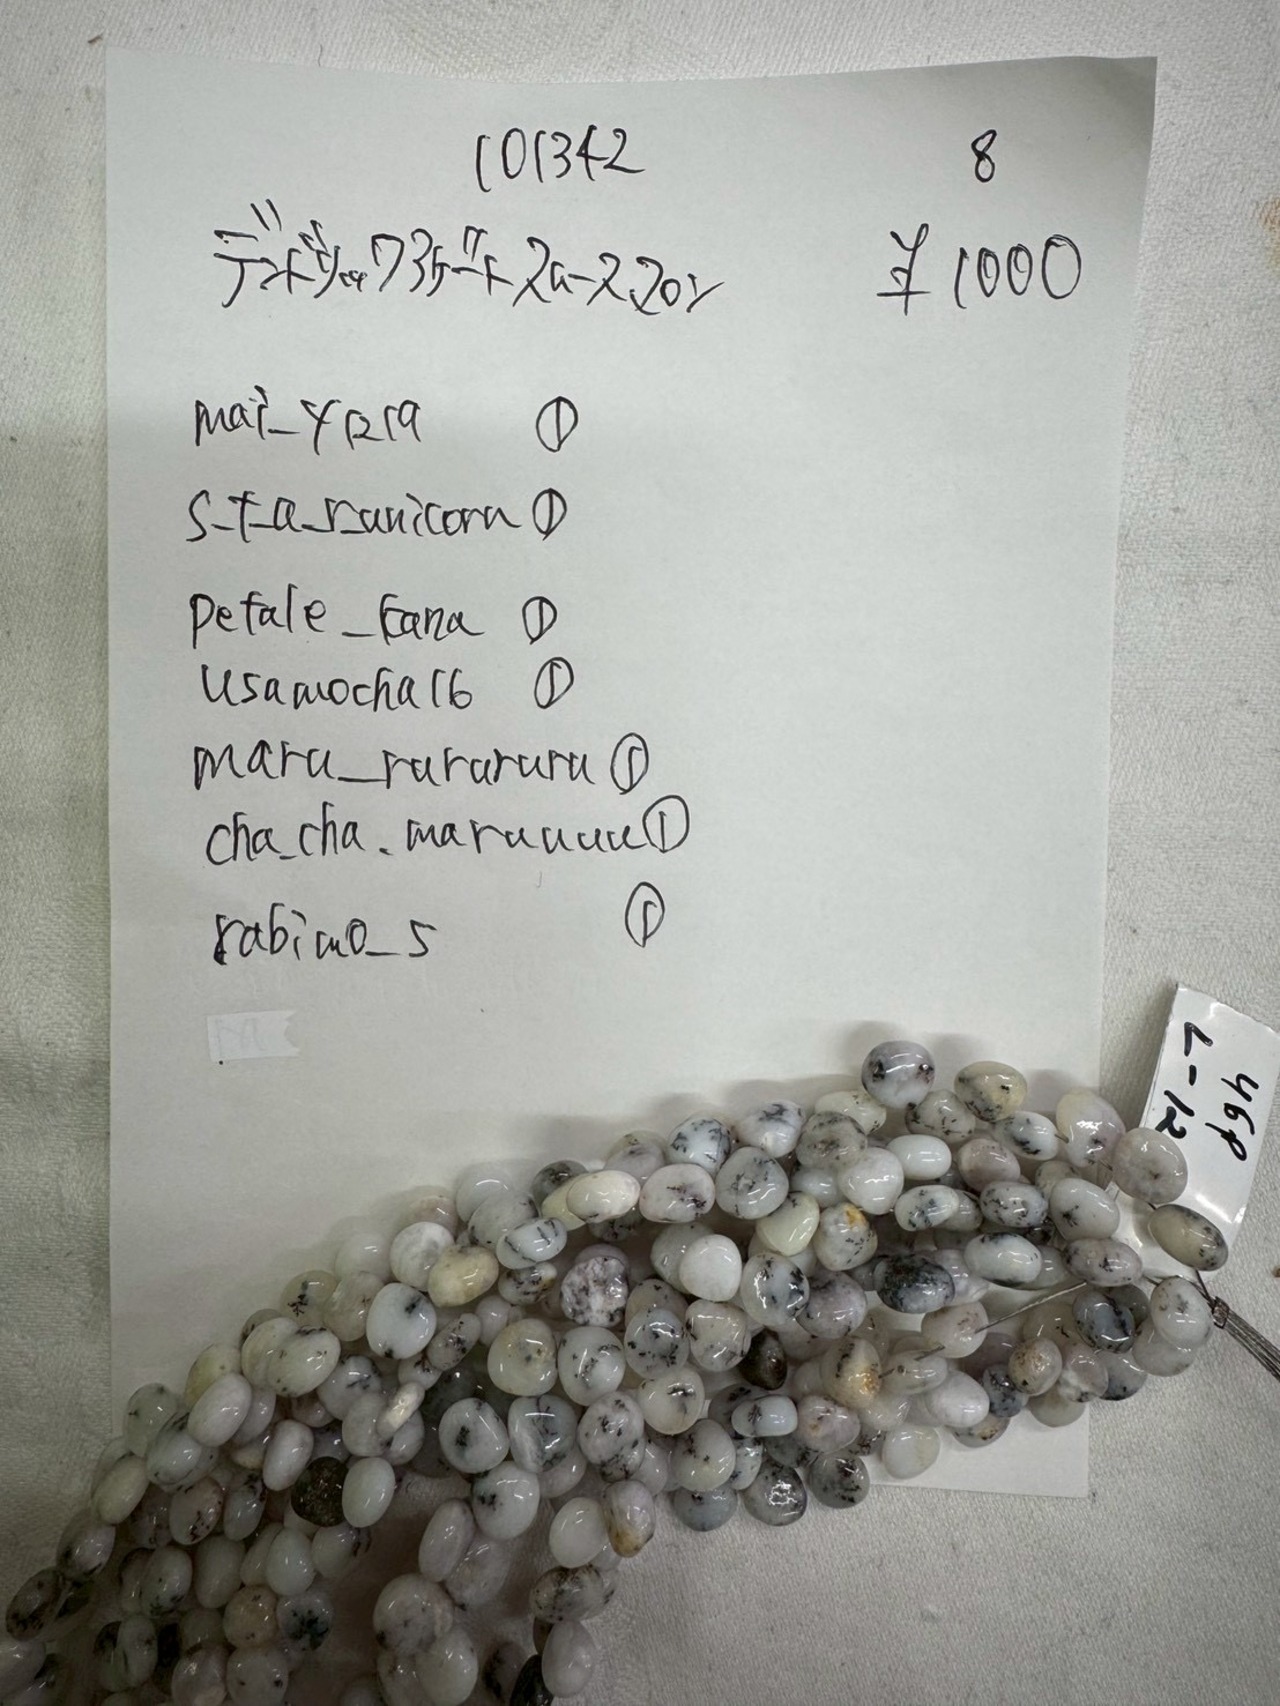 101342 8
デンドリティックアゲート ルース 20ヶ ¥1000
mai_y1219 ①
s_t_a_r_unicorn ①
petale_kana ①
usamocha16 ①
maru_rurururu ①
cha_cha.maruuuu ①
rabimo_s ①
46P
L-12